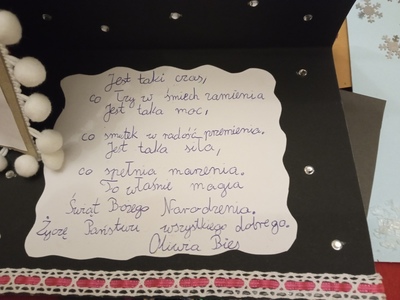 Jest taki czas,
co łzy w śmiech zamienia
Jest taka moc,
co smutek w radość przemienia.
Jest taka siła,
co spełnia marzenia.
To właśnie magia
Świąt Bożego Narodzenia.
Życzę Państwu wszystkiego dobrego.
Oliwia Bies